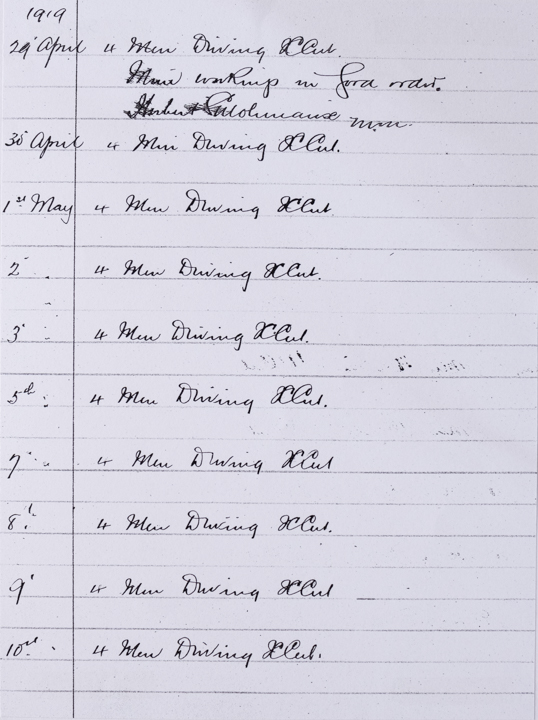 1919
29 April 4 Men Driving XCut.
Mine workings in good order.
30 April 4 Men Driving XCut.
1st May 4 Men Driving XCut
2 " 4 Men Driving XCut.
3 " 4 Men Driving XCut.
5d " 4 Men Driving XCut.
7 " 4 Men Driving XCut
8 " 4 Men Driving XCut.
9 " 4 Men Driving XCut
10 " 4 Men Driving XCut.